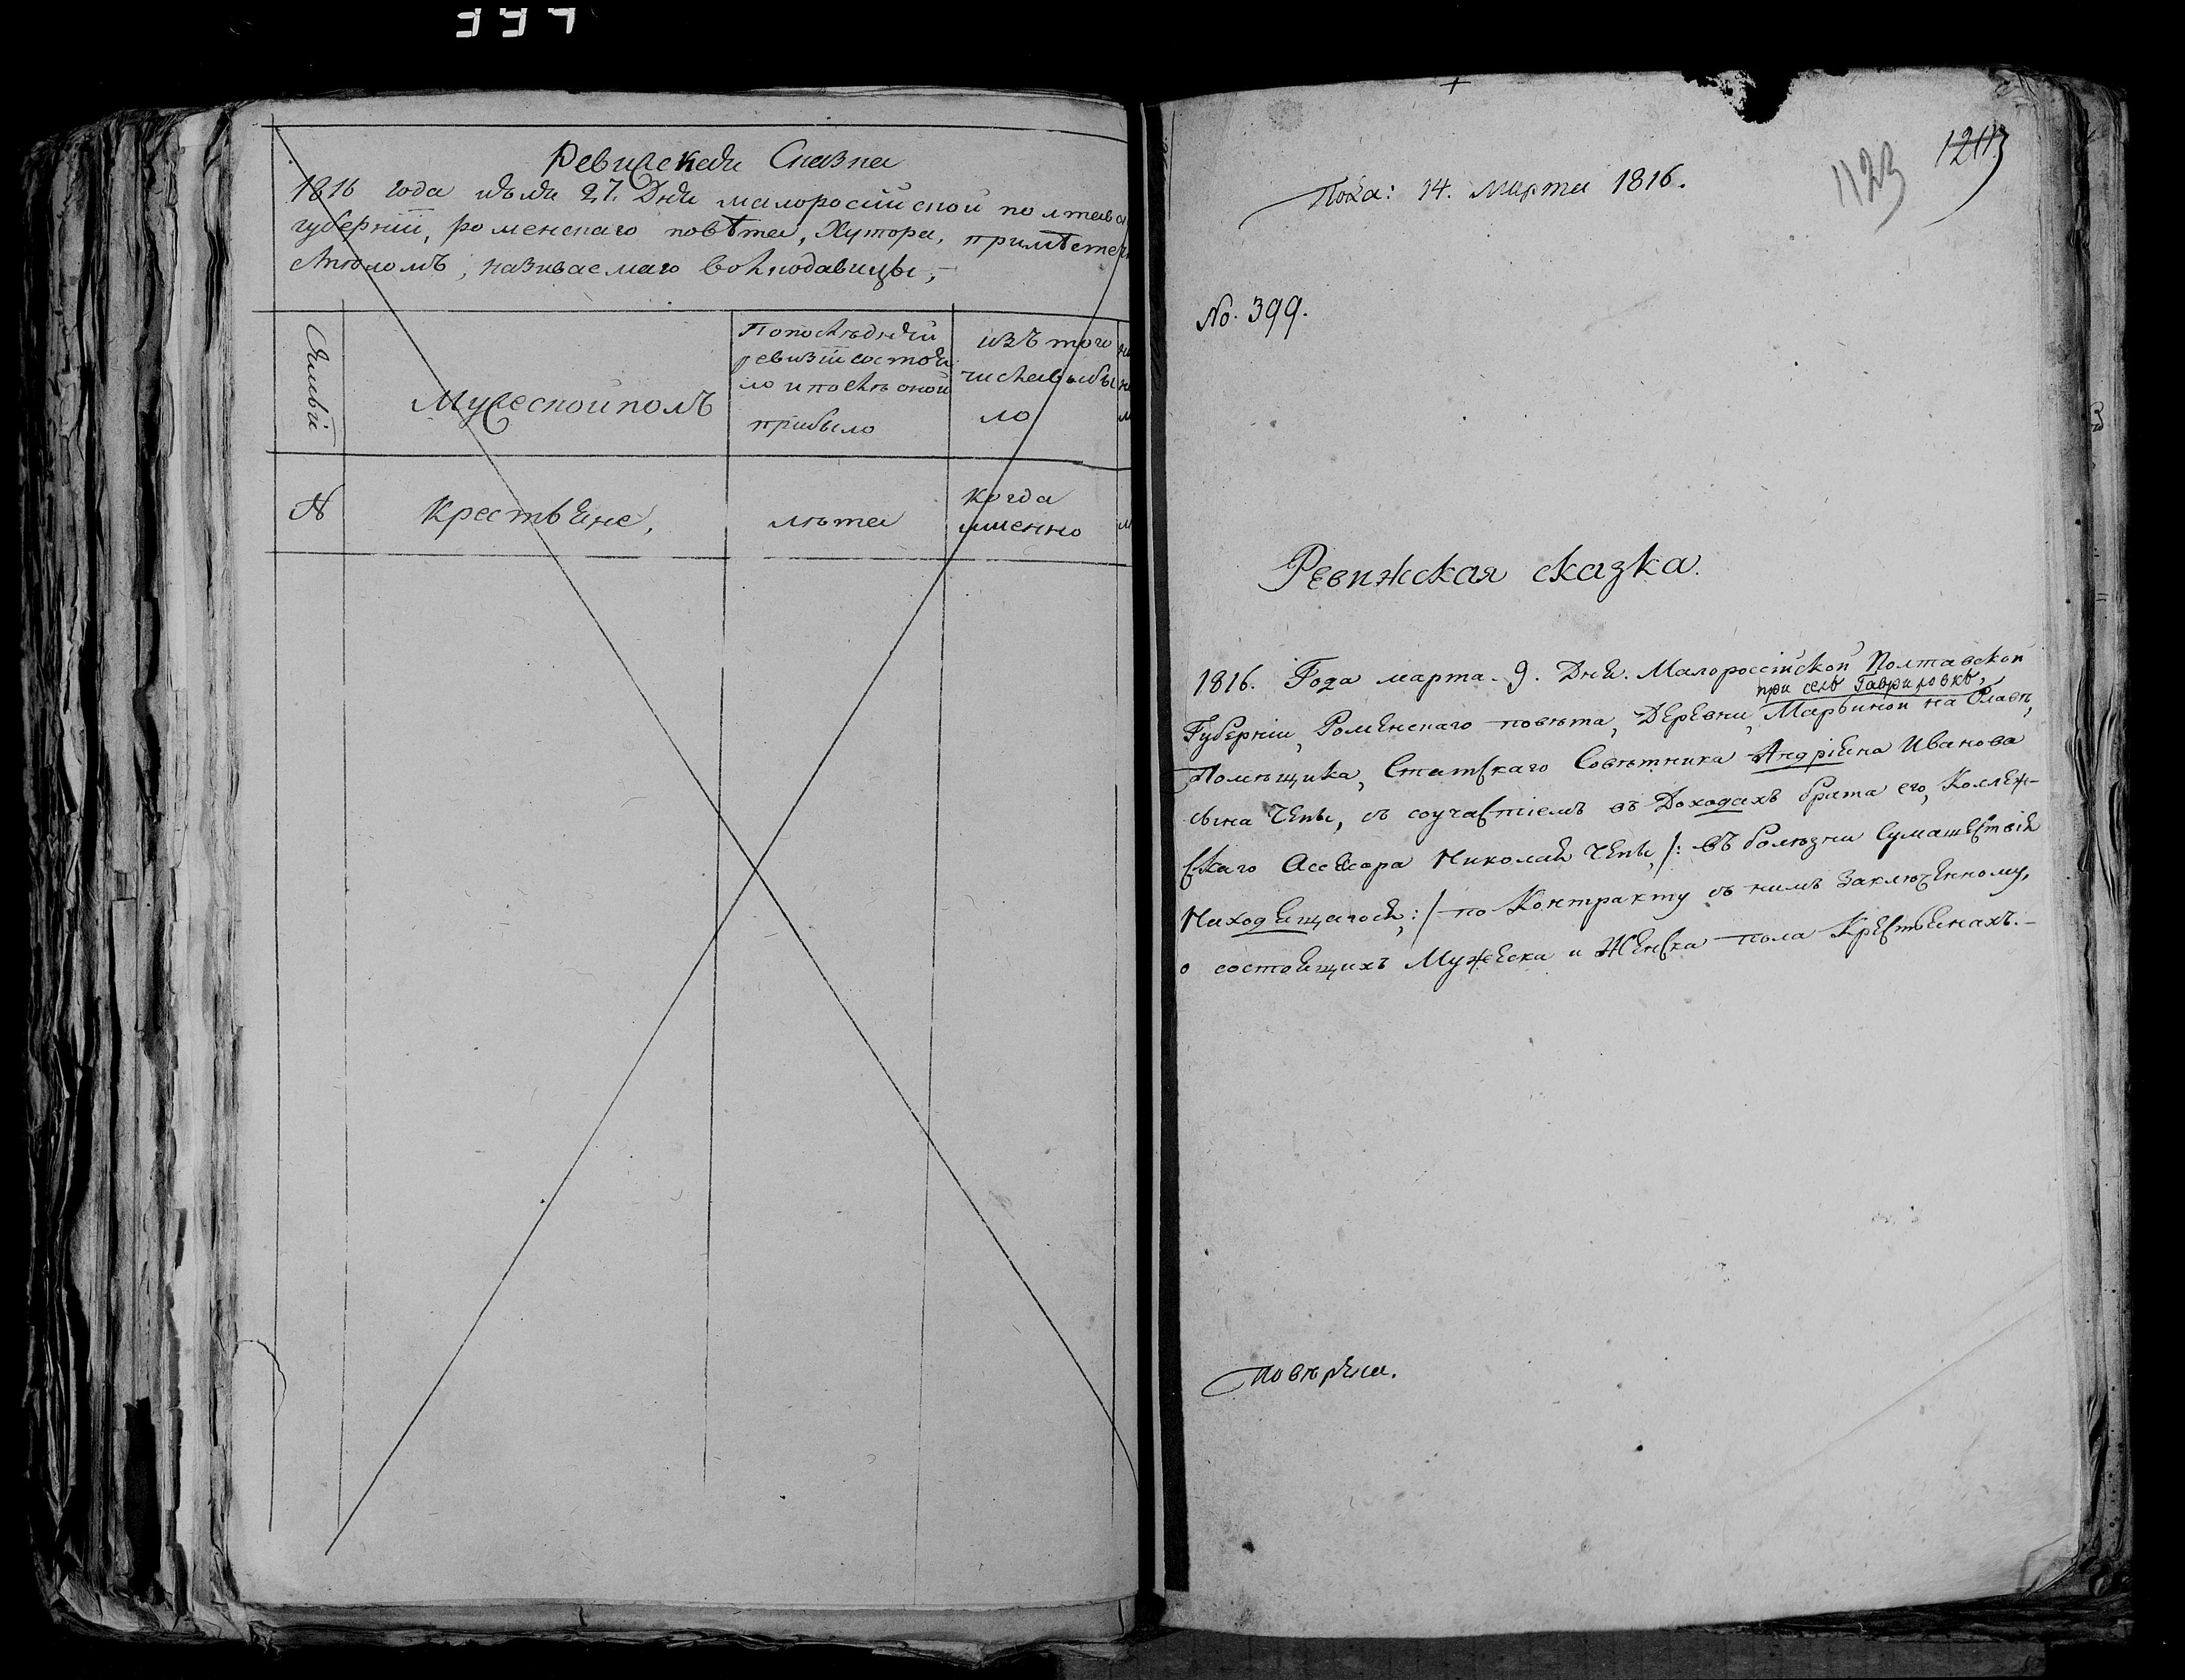 Ревижская Сказка
1816 года июля 27. Дня малоросийской полтавс
губерніи, роменскаго повѣта, Хутора, примѣстеч
называемаго
Симьи
Мужескойполъ
Попослѣдней
ревизіи состоя
ло ипослѣ оной
прибыло
изъ того
числавыбы
ло
№
Крестьяне,
лѣта
когда
именно
1123
Пода: 14. марта 1816.
No. 399.
Ревижская сказка.
1816. Года марта. 9. Дня. Малороссійской Полтавской
при селѣ Гавриловкѣ,
Губерніи, Роменскаго повѣта, Деревни, Марьиной на
Помѣщика, Статскаго Совѣтника Андріяна Иванова
сына Чепы, съ соучастіемъ въ Доходахъ брата его, Коллеж-
скаго Асесора Николая Чепы, /: въ болѣзни сумашествія
Находящагося; :/ по Контракту съ нимъ заключенному,
о состоящихъ Мужеска и Женска пола Крестьянахъ. –
повѣрена.